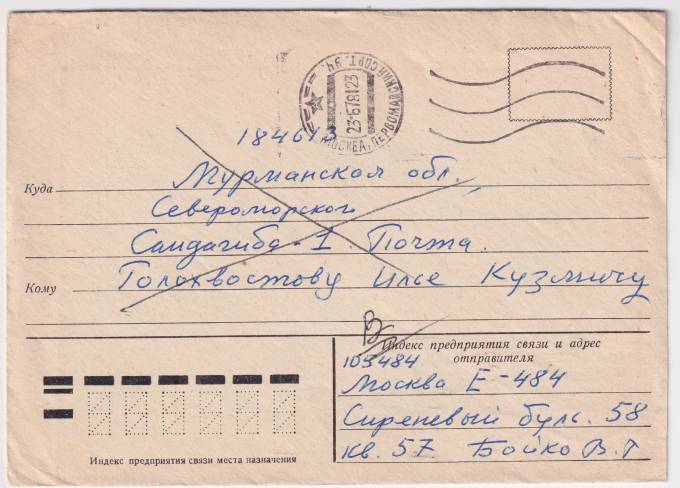 МОСКВА, ПЕРВОМАЙСКИЙ СОРТ. УЧ.
23-6781 23
184613
Куда Мурманская обл.,
Североморского
Сайдагиба-1 Почта.
Кому Голохвастову Илье Кузмичу
Индекс предприятия связи и адрес
отправителя
105484
Москва Е-484
Сиреневый бульв. 58
кв. 57. Бойко В.Г
Индекс предприятия связи места назначения